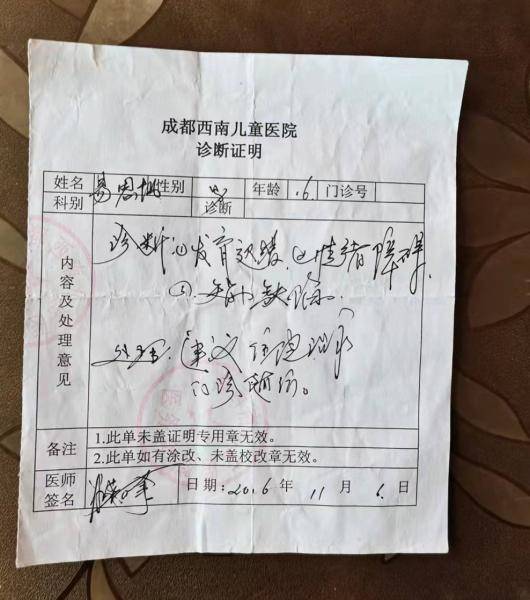 成都西南儿童医院
诊断证明
姓名 易思 性别 年龄 6 门诊号
科别 诊断
内容及处理意见
诊断:①发育迟缓,②情绪障碍,
③.
处理:建议住院
门诊随访。
备注 1.此单未盖证明专用章无效。
2.此单如有涂改、未盖校改章无效。
医师签名 日期:2016 年 11 月 6 日